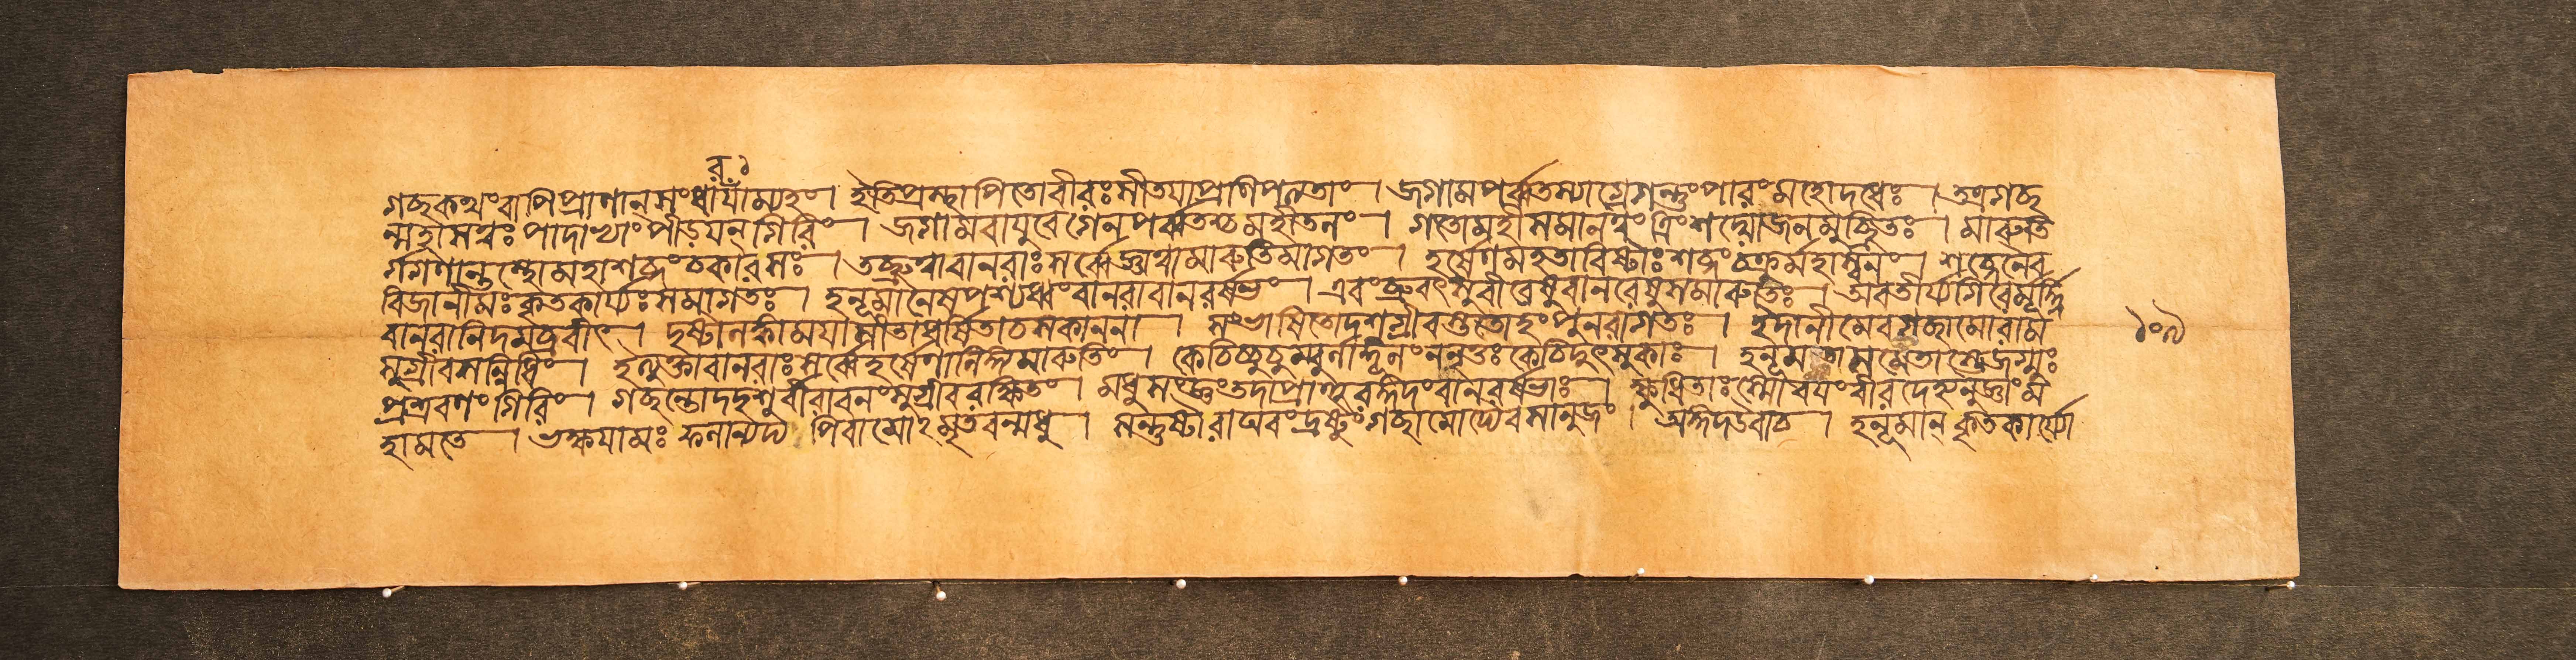 র১
গচ্ছকথংবাপিপ্রাণান্সংধার্যাম্যহং। ইতিপ্রস্থাপিতোবীরঃসীতয়াপ্রণিপত্যতাং। জগামপর্ব্বতস্যাগ্রেগন্তুংপারংমহোদধেঃ। তত্রগচ্ছ
ন্মহাসত্বঃপাদাভ্যাংপীড়য়ন্গিরিং। জগামবায়ুবেগেনপর্ব্বতশ্চমহীতলং। গতোমহীসমানত্বংত্রিংশদ্যোজনমুচ্ছ্রিতঃ। মারুতি
র্গগণান্তস্থোমহাশব্দংচকারসঃ। তচ্ছ্রুত্বাবানরাঃসর্ব্বেজ্ঞাত্বামারুতিমাগতং। হর্ষেণমহতাবিষ্টাঃশব্দংচক্রুর্মহাস্বনং। শব্দেনৈব
বিজানীমঃকৃতকার্য্যঃসমাগতঃ। হনূমানৈষপশ্যধ্বংবানরাবানরর্ষভং। এবংব্রুবৎসুবীরেষুবানরেষুসমারুতিঃ। অবতীর্য্যগিরের্মূর্দ্ধ্নি
বানরানিদমব্রবীৎ। দৃষ্টালঙ্কাময়াসীতাধর্ষিতাচসকাননা। সংভাষিতোদশগ্রীবস্ততোহংপুনরাগতঃ। ইদানীমেবগচ্ছামোরাম
সুগ্রীবসন্নিধিং। ইত্যুক্তাবানরাঃসর্ব্বেহর্ষেণালিঙ্গ্যমারুতিং। কেচিচ্চুচুম্বুর্লাঙ্গূলংননৃতুঃকেচিদুৎসুকাঃ। হনূমতাসমেতাস্তেজগ্মুঃ
প্রস্রবণংগিরিং। গচ্ছন্তোদদৃশুর্বীরাবনংসুগ্রীবরক্ষিতং। মধুসংজ্ঞংতদাপ্রাহুরঙ্গদংবানরর্ষভাঃ। ক্ষুধিতাঃস্মোবয়ংবীরদেহ্যনুজ্ঞাংম
হামতে। ভক্ষয়ামঃফলান্যদ্য পিবামোঽমৃতবন্মধু। সন্তুষ্টারাঘবংদ্রষ্টুংগচ্ছামোদ্যৈবসানুজং। অঙ্গদউবাচ। হনূমান্ কৃতকার্য্যো
১০৯